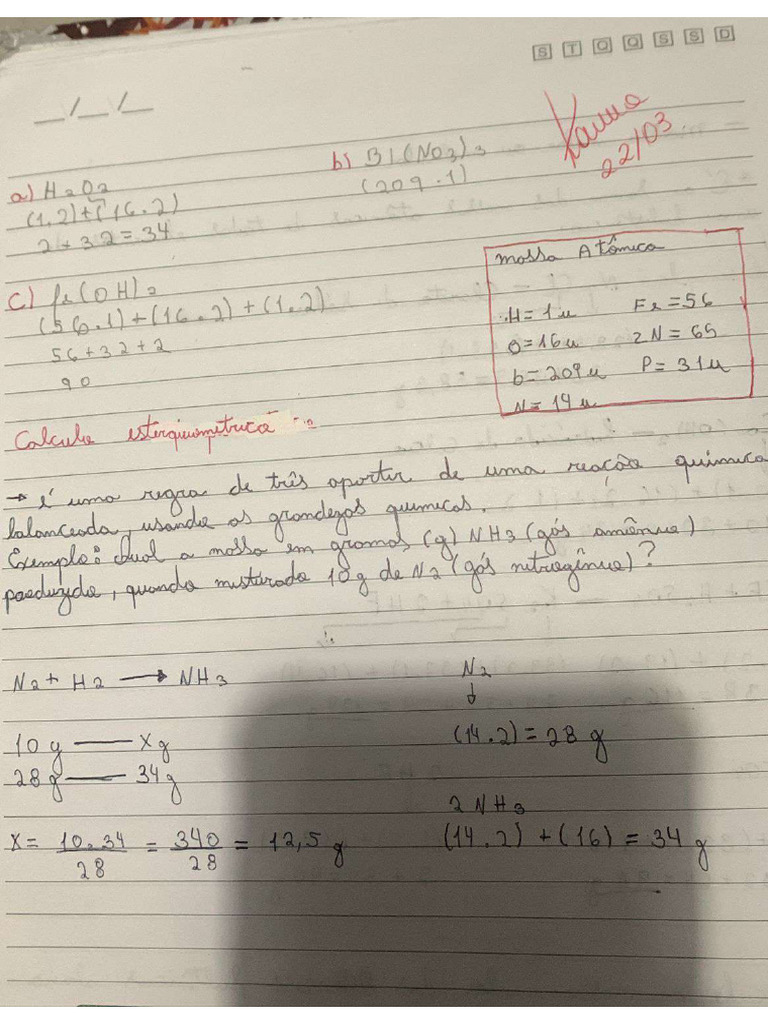 S T Q Q S S D
__/__/__
Kauma
22/03
a) H2O2
(1.2)+(16.2)
2+32=34
b) BI(NO3)3
(209.1)
c) fe(OH)2
(56.1)+(16.2)+(1.2)
56+32+2
90
Massa Atômica
H=1u Fe=56
O=16u ZN=65
b=209u P=31u
N=14u
Calculo esterquiometrica
→ é uma regra de três apartir de uma reação química
balanceada, usando as grandezas quimicas.
Exemplo: Qual a massa em gramas (g) NH3 (gás amônia)
produzida, quando misturada 10g de N2 (gás nitrogênio)?
N2 + H2 → NH3
10g — Xg
28g — 34g
X= 10.34 = 340 = 12,5 g
28 28
N2
↓
(14.2)=28 g
2 NH3
(14.2)+(16)=34 g